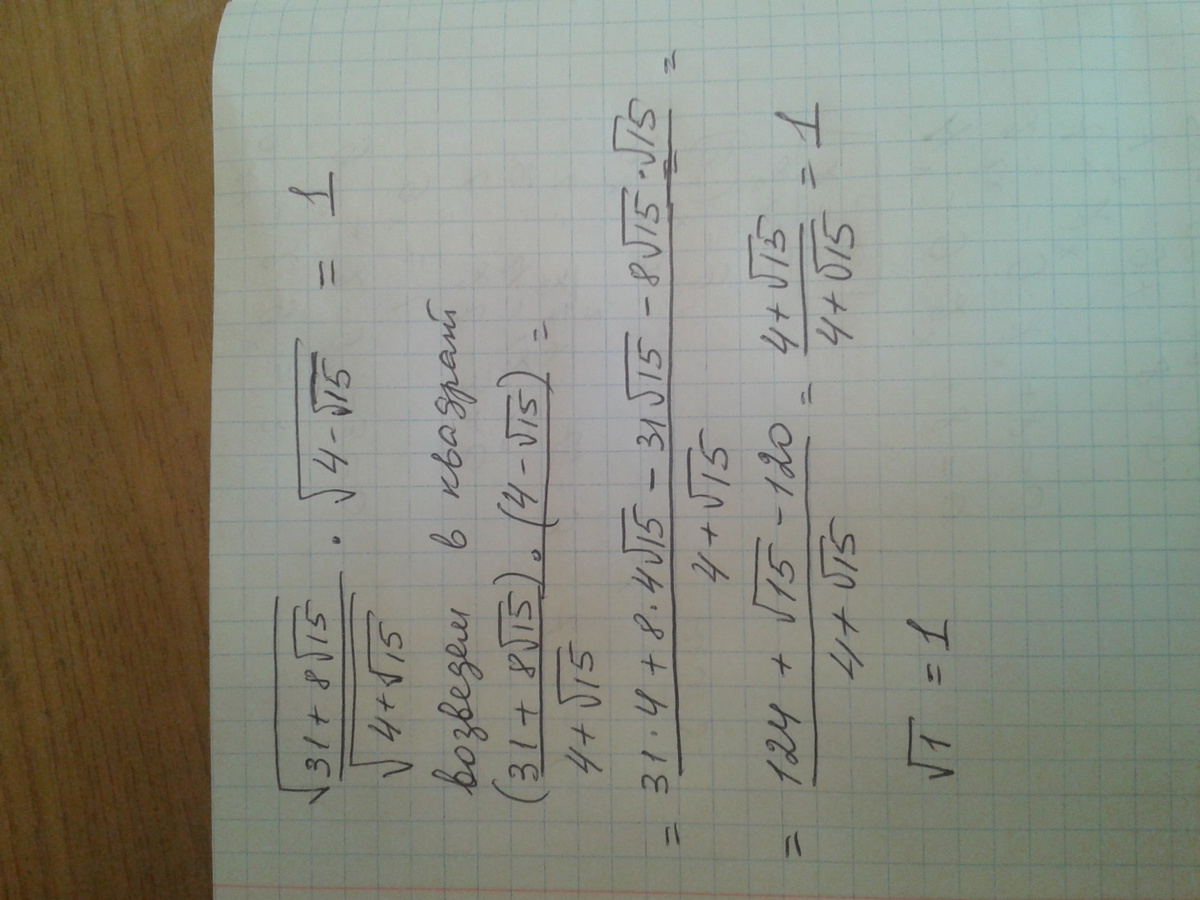 √(31 + 8√15) / √(4+√15) · √(4-√15) = 1
возведем в квадрат
(31 + 8√15) · (4 - √15) / 4+√15 =
= 31 · 4 + 8 · 4√15 - 31√15 - 8√15 · √15 / 4+√15 = =
= 124 + √15 - 120 / 4+√15 = 4+√15 / 4+√15 = 1
√1 = 1